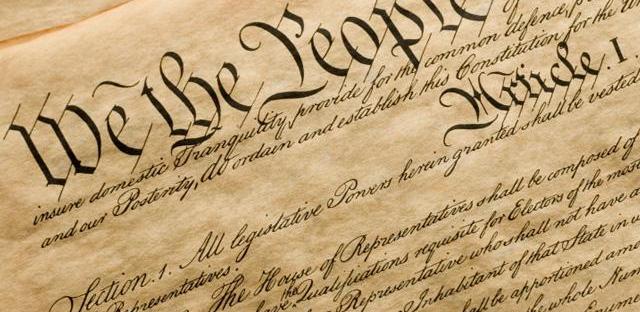 We the People
insure domestic Tranquility, provide for the common defence,
and our Posterity, do ordain and establish this Constitution for the
Article. I
Section. 1. All legislative Powers herein granted shall be vested
Representatives.
The House of Representatives shall be composed of
the
Qualifications requisite for Electors of the most
Representative who shall not have
Inhabitant of that State in
shall be apportioned
the whole Num